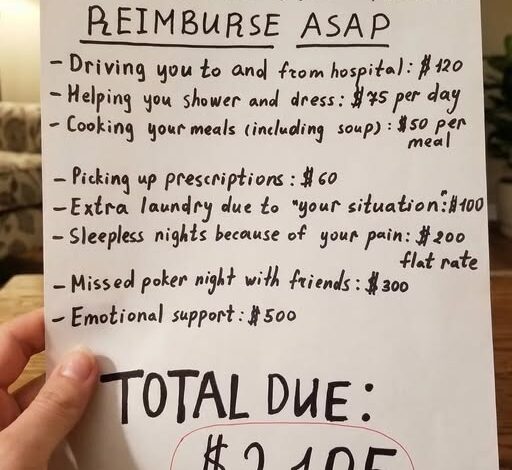 REIMBURSE ASAP
- Driving you to and from hospital: $120
- Helping you shower and dress: $75 per day
- Cooking your meals (including soup): $50 per
meal
- Picking up prescriptions: $60
- Extra laundry due to "your situation": $100
- Sleepless nights because of your pain: $200
flat rate
- Missed poker night with friends: $300
- Emotional support: $500
TOTAL DUE:
$2,105